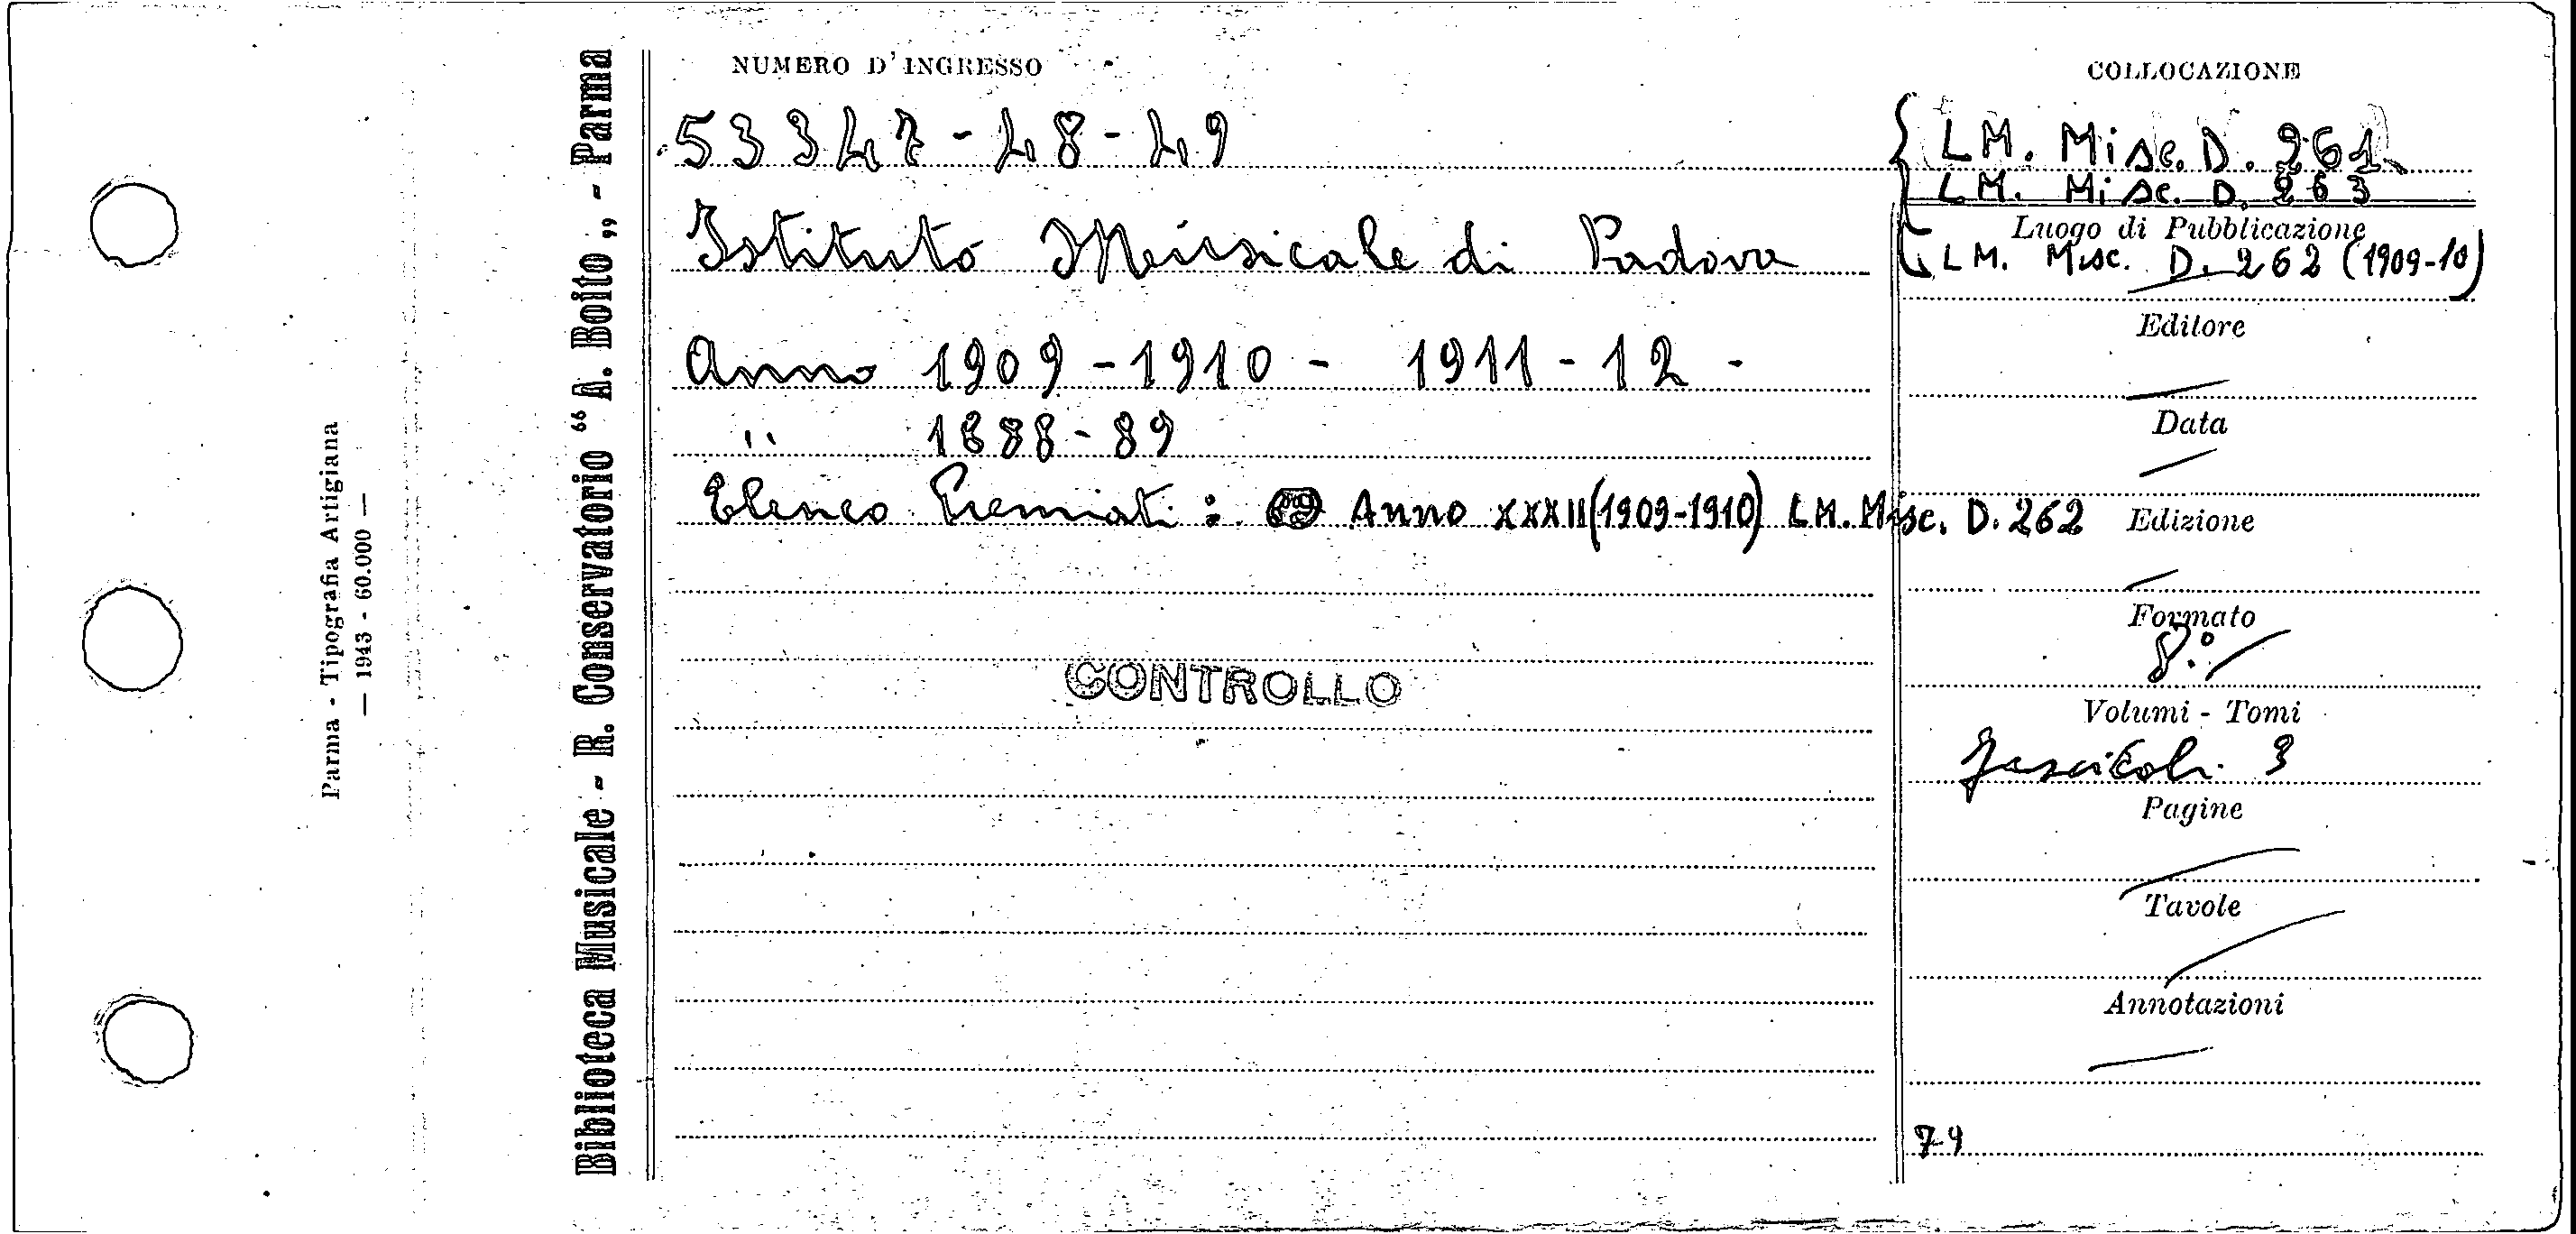 Parma - Tipografia Artigiana
— 1943 - 60.000 —
Biblioteca Musicale - R. Conservatorio “A. Boito„ - Parma
NUMERO D'INGRESSO
53347-48-49
Istituto Musicale di Padova
Anno 1909-1910 - 1911-12 -
" 1888-89
Elenco Premiati: Anno XXXII (1909-1910) LM. Misc. D. 262
CONTROLLO
COLLOCAZIONE
LM. Misc. D. 261
LM. Misc. D. 263
Luogo di Pubblicazione
LM. Misc. D. 262 (1909-10)
Editore
Data
Edizione
Formato
8°
Volumi - Tomi
fascicoli 3
Pagine
Tavole
Annotazioni